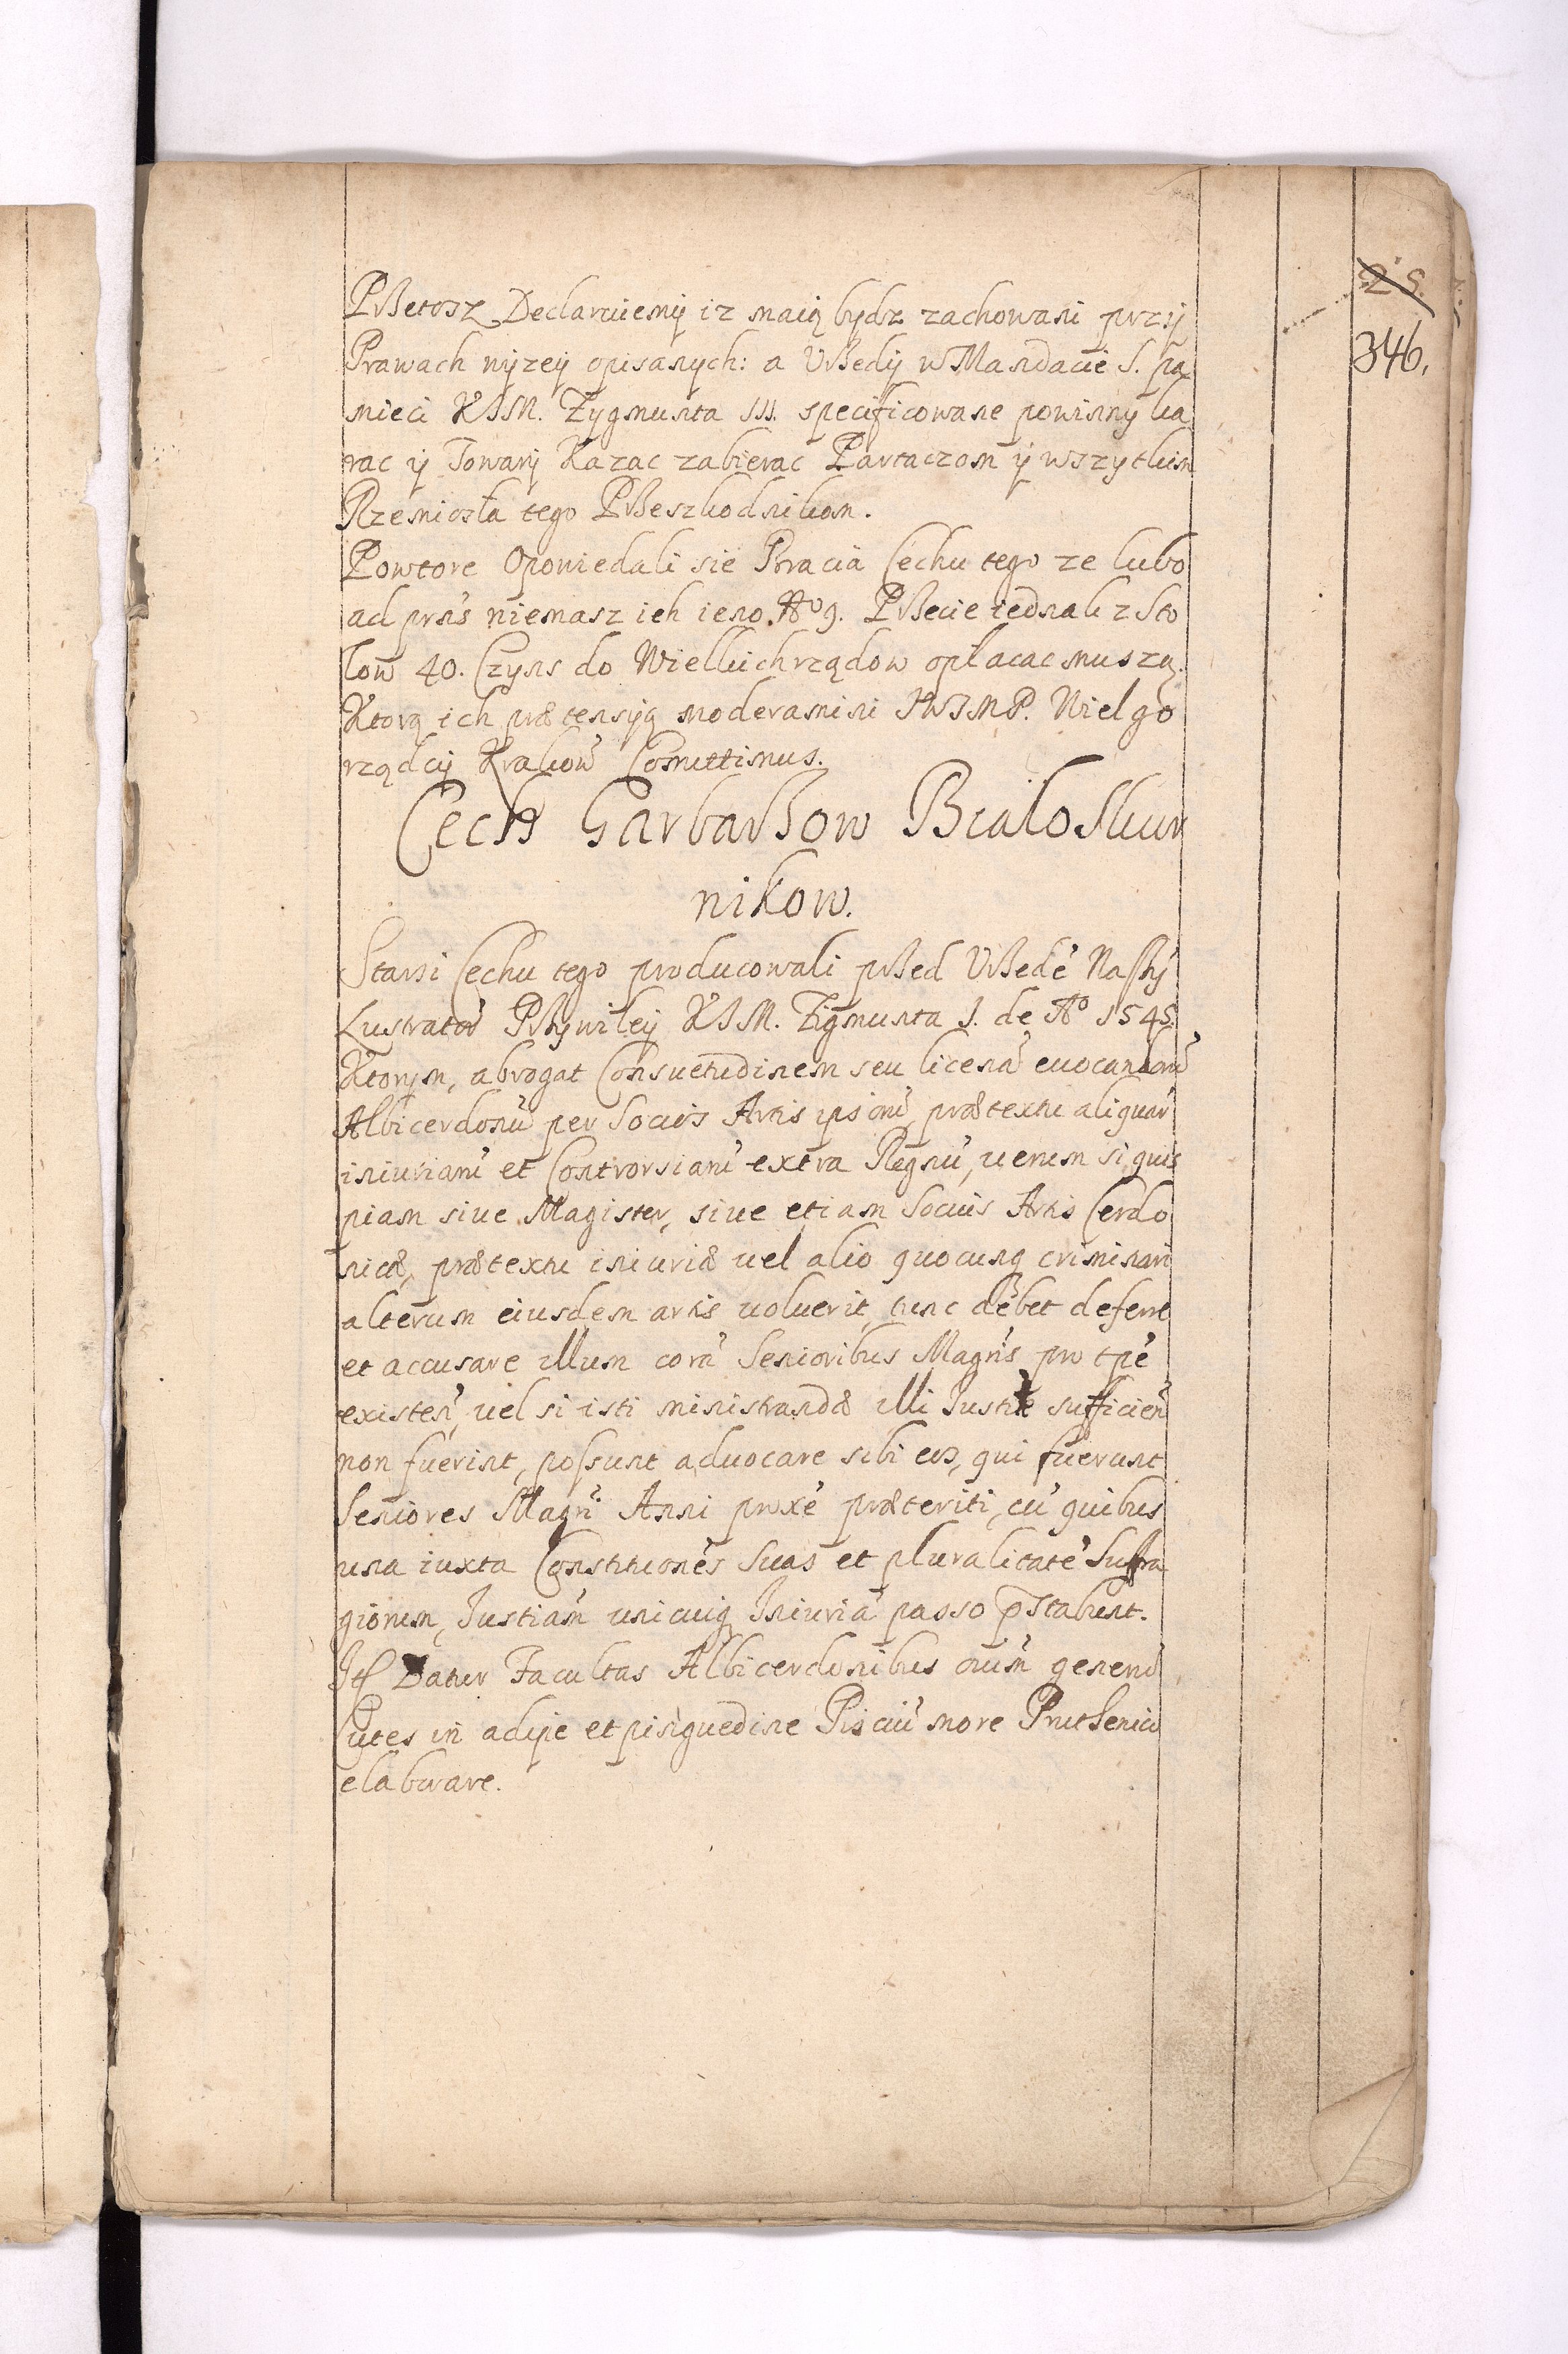 25.
346.
Przetosz Declaruiemy iz maią bydz zachowani przy
Prawach nyzey opisanych: a Vrzedy w Mandacie S. pa
mieci KJM. Zygmunta III. specificowane powinny ka
rac y Towary Kazac zabierac Partaczom y wszytkim
Rzemiosła tego Przeszkodnikom.
Powtore Opowiedali sie Bracia Cechu tego ze lubo
ad prns niemasz ich ieno No 9. Przecie iednak z Sto
łow 40. Czyns do Wielkichrządow opłacac muszą.
Ktorą ich prætensyą moderamini JWJMP. Wielgo
rządcy Krakow Comittimus.
Cech Garbarzow Biało Skur
nikow.
Starsi Cechu tego producowali przed Vrzedē Naszȳ
Lustrator Przywiley KJM. Zigmunta I. de Ao 1545.
Ktorym, abrogat Consuetudinem seu licenā euocandorū
Albicerdonū per Socios Artis ipsorū prætextu aliquar
iniuriarū et Controrsiarū extra Regnū, uerum si quis
piam siue Magister, siue etiam Socius Artis Cerdo
nicæ, prætextu iniuriæ uel alio quocunq criminari
alterum eiusdem artis uoluerit, tunc debet deferre
et accusare illum corā Senioribus Magris pro tpe
existen, uel si isti ministrandæ illi Justiæ sufficien
non fuerint, possunt aduocare sibi eos, qui fuerunt
Seniores Magri Anni proxe præteriti, cū quibus
una iuxta Constitiones Suas et pluralitatē Suffra
giorum, Justiam unicuiq Iniuriā passo pstabunt.
It Datur Facultas Albicerdonibus oium generū
Cutes in adipe et pinguedine Pisciū more Pruthenico
elaborare.